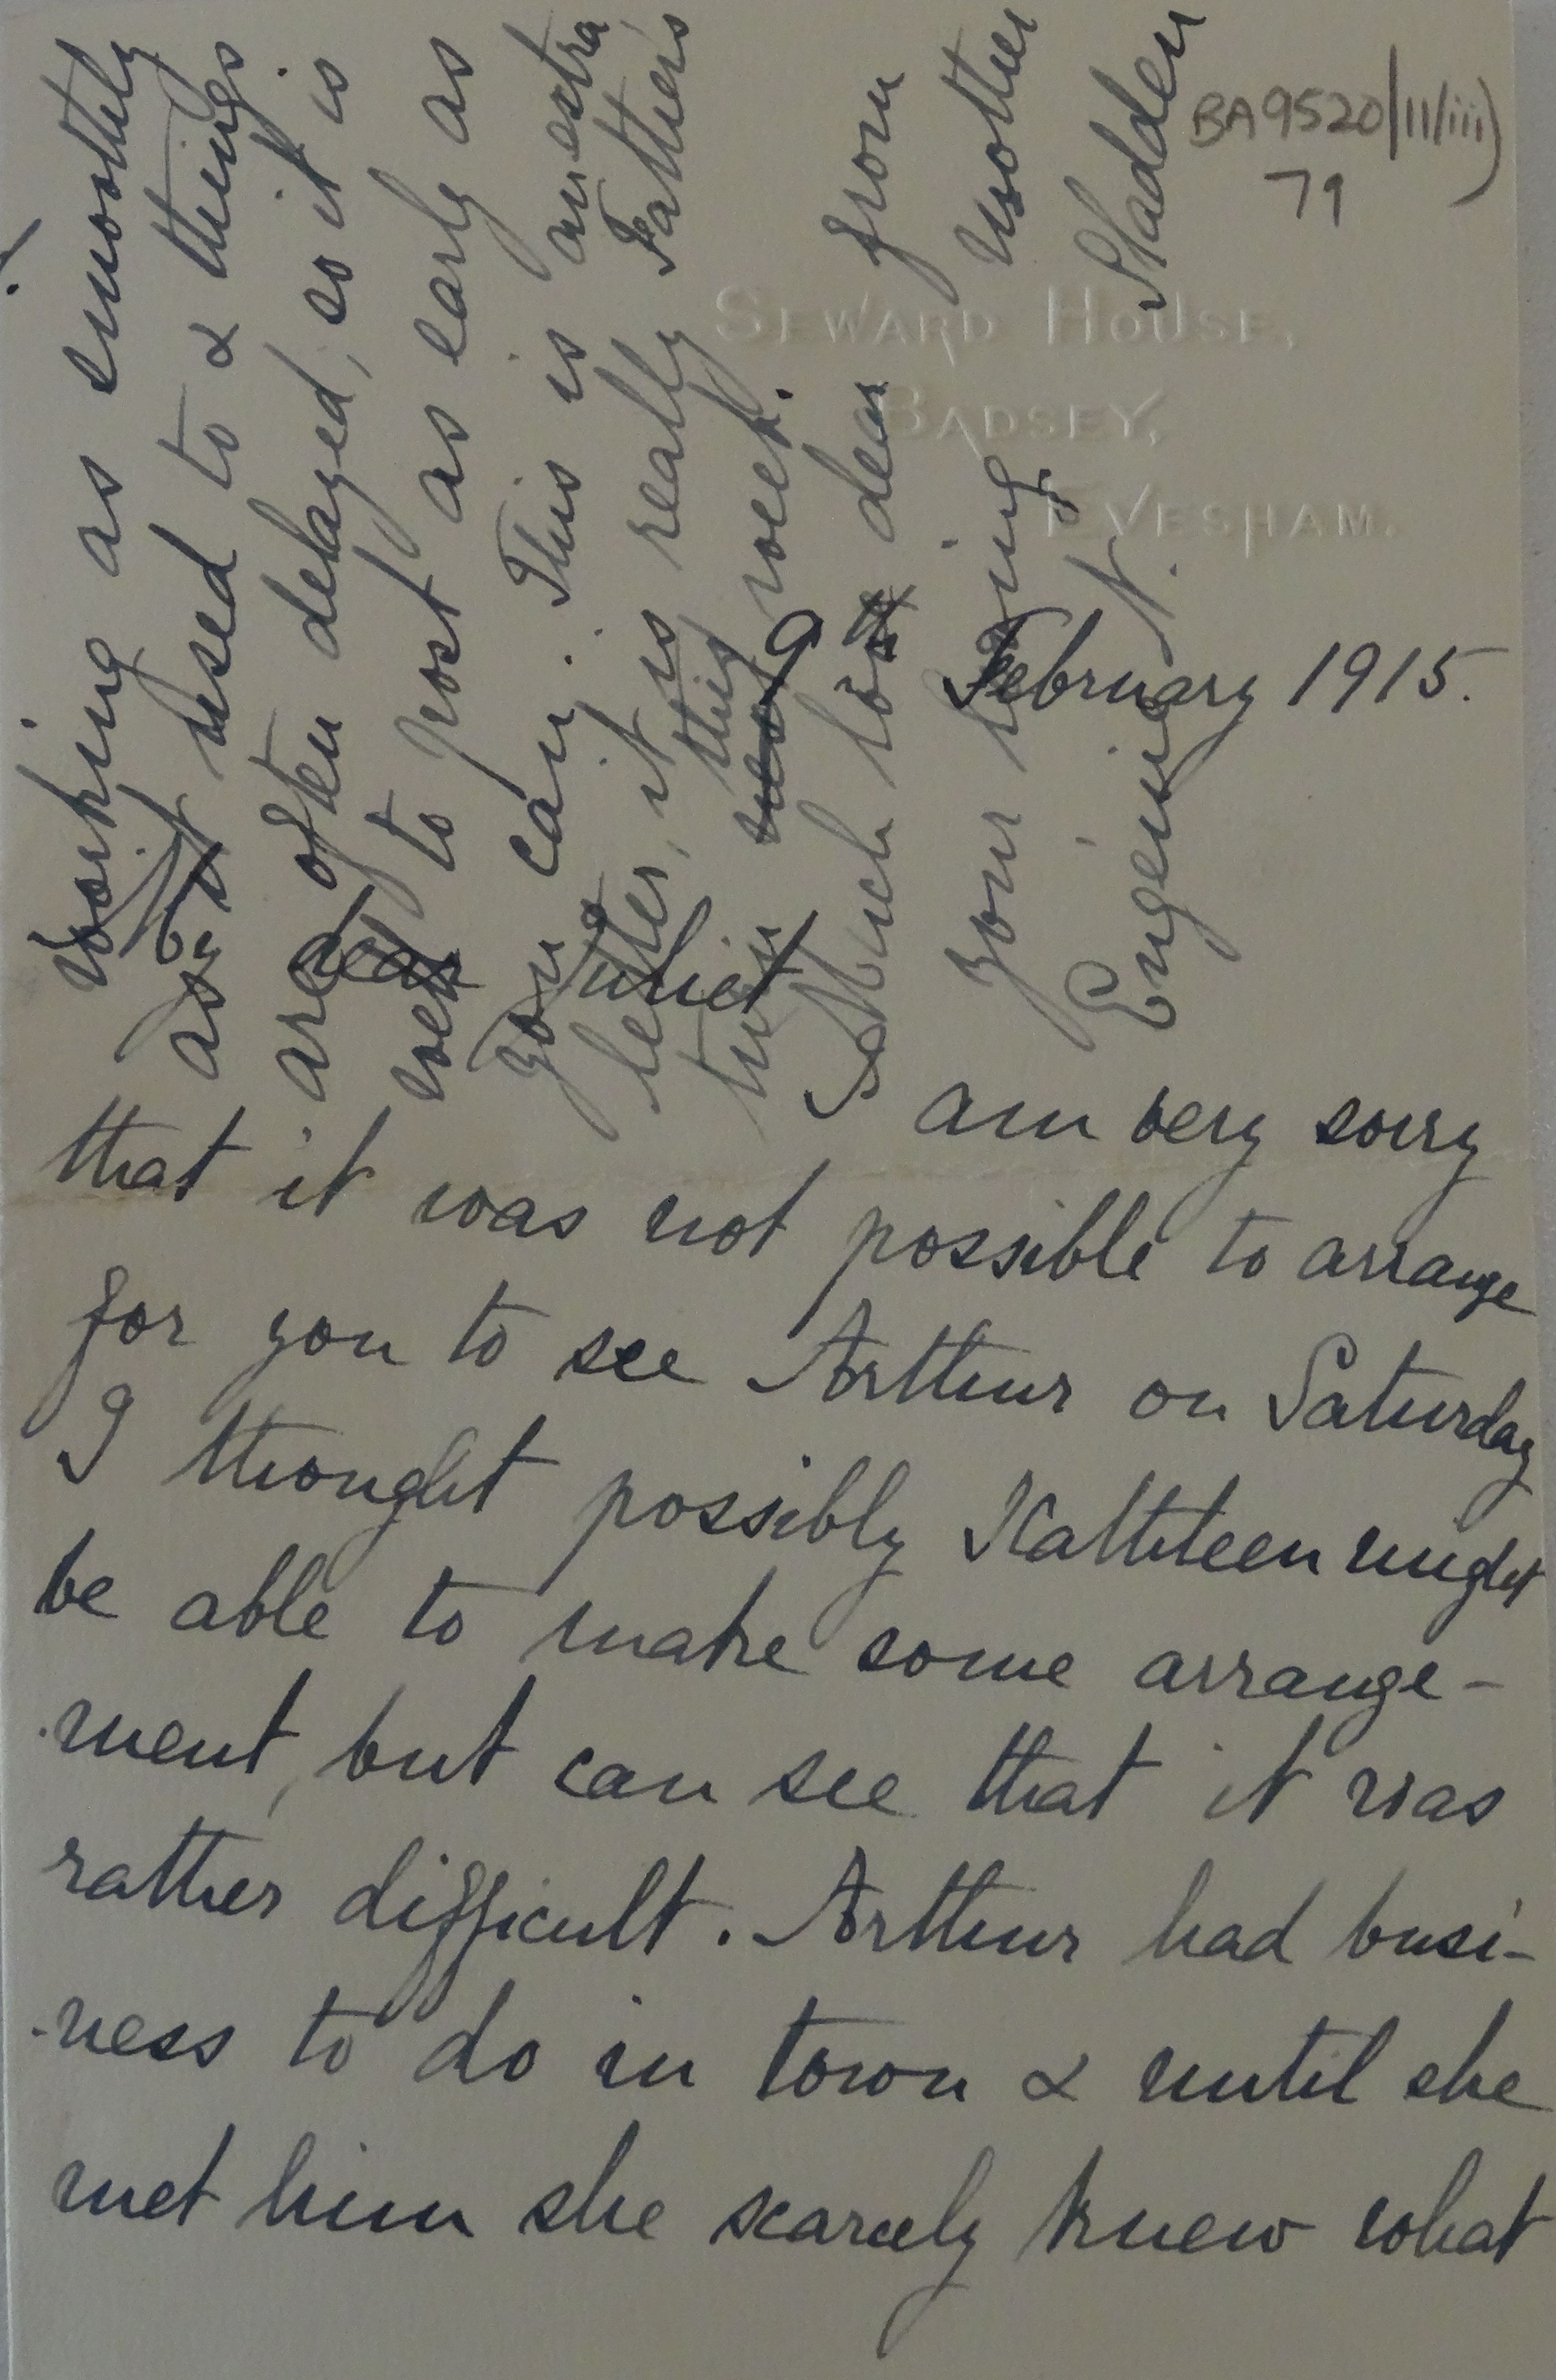 BA9520/11/iii)
79
SEWARD HOUSE,
BADSEY,
EVESHAM.
9th February 1915.
My dear Juliet
I am very sorry
that it was not possible to arrange
for you to see Arthur on Saturday
I thought possibly Kathleen might
be able to make some arrange-
ment, but can see that it was
rather difficult. Arthur had busi-
-ness to do in town & until she
met him she scarcely knew what
working as smoothly
as it used to & things
are often delayed, so it is
well to post as early as
you can. This is an extra
letter, it is really Father's
turn this week.
Much love dear from
your loving mother
Eugénie N. Sladden